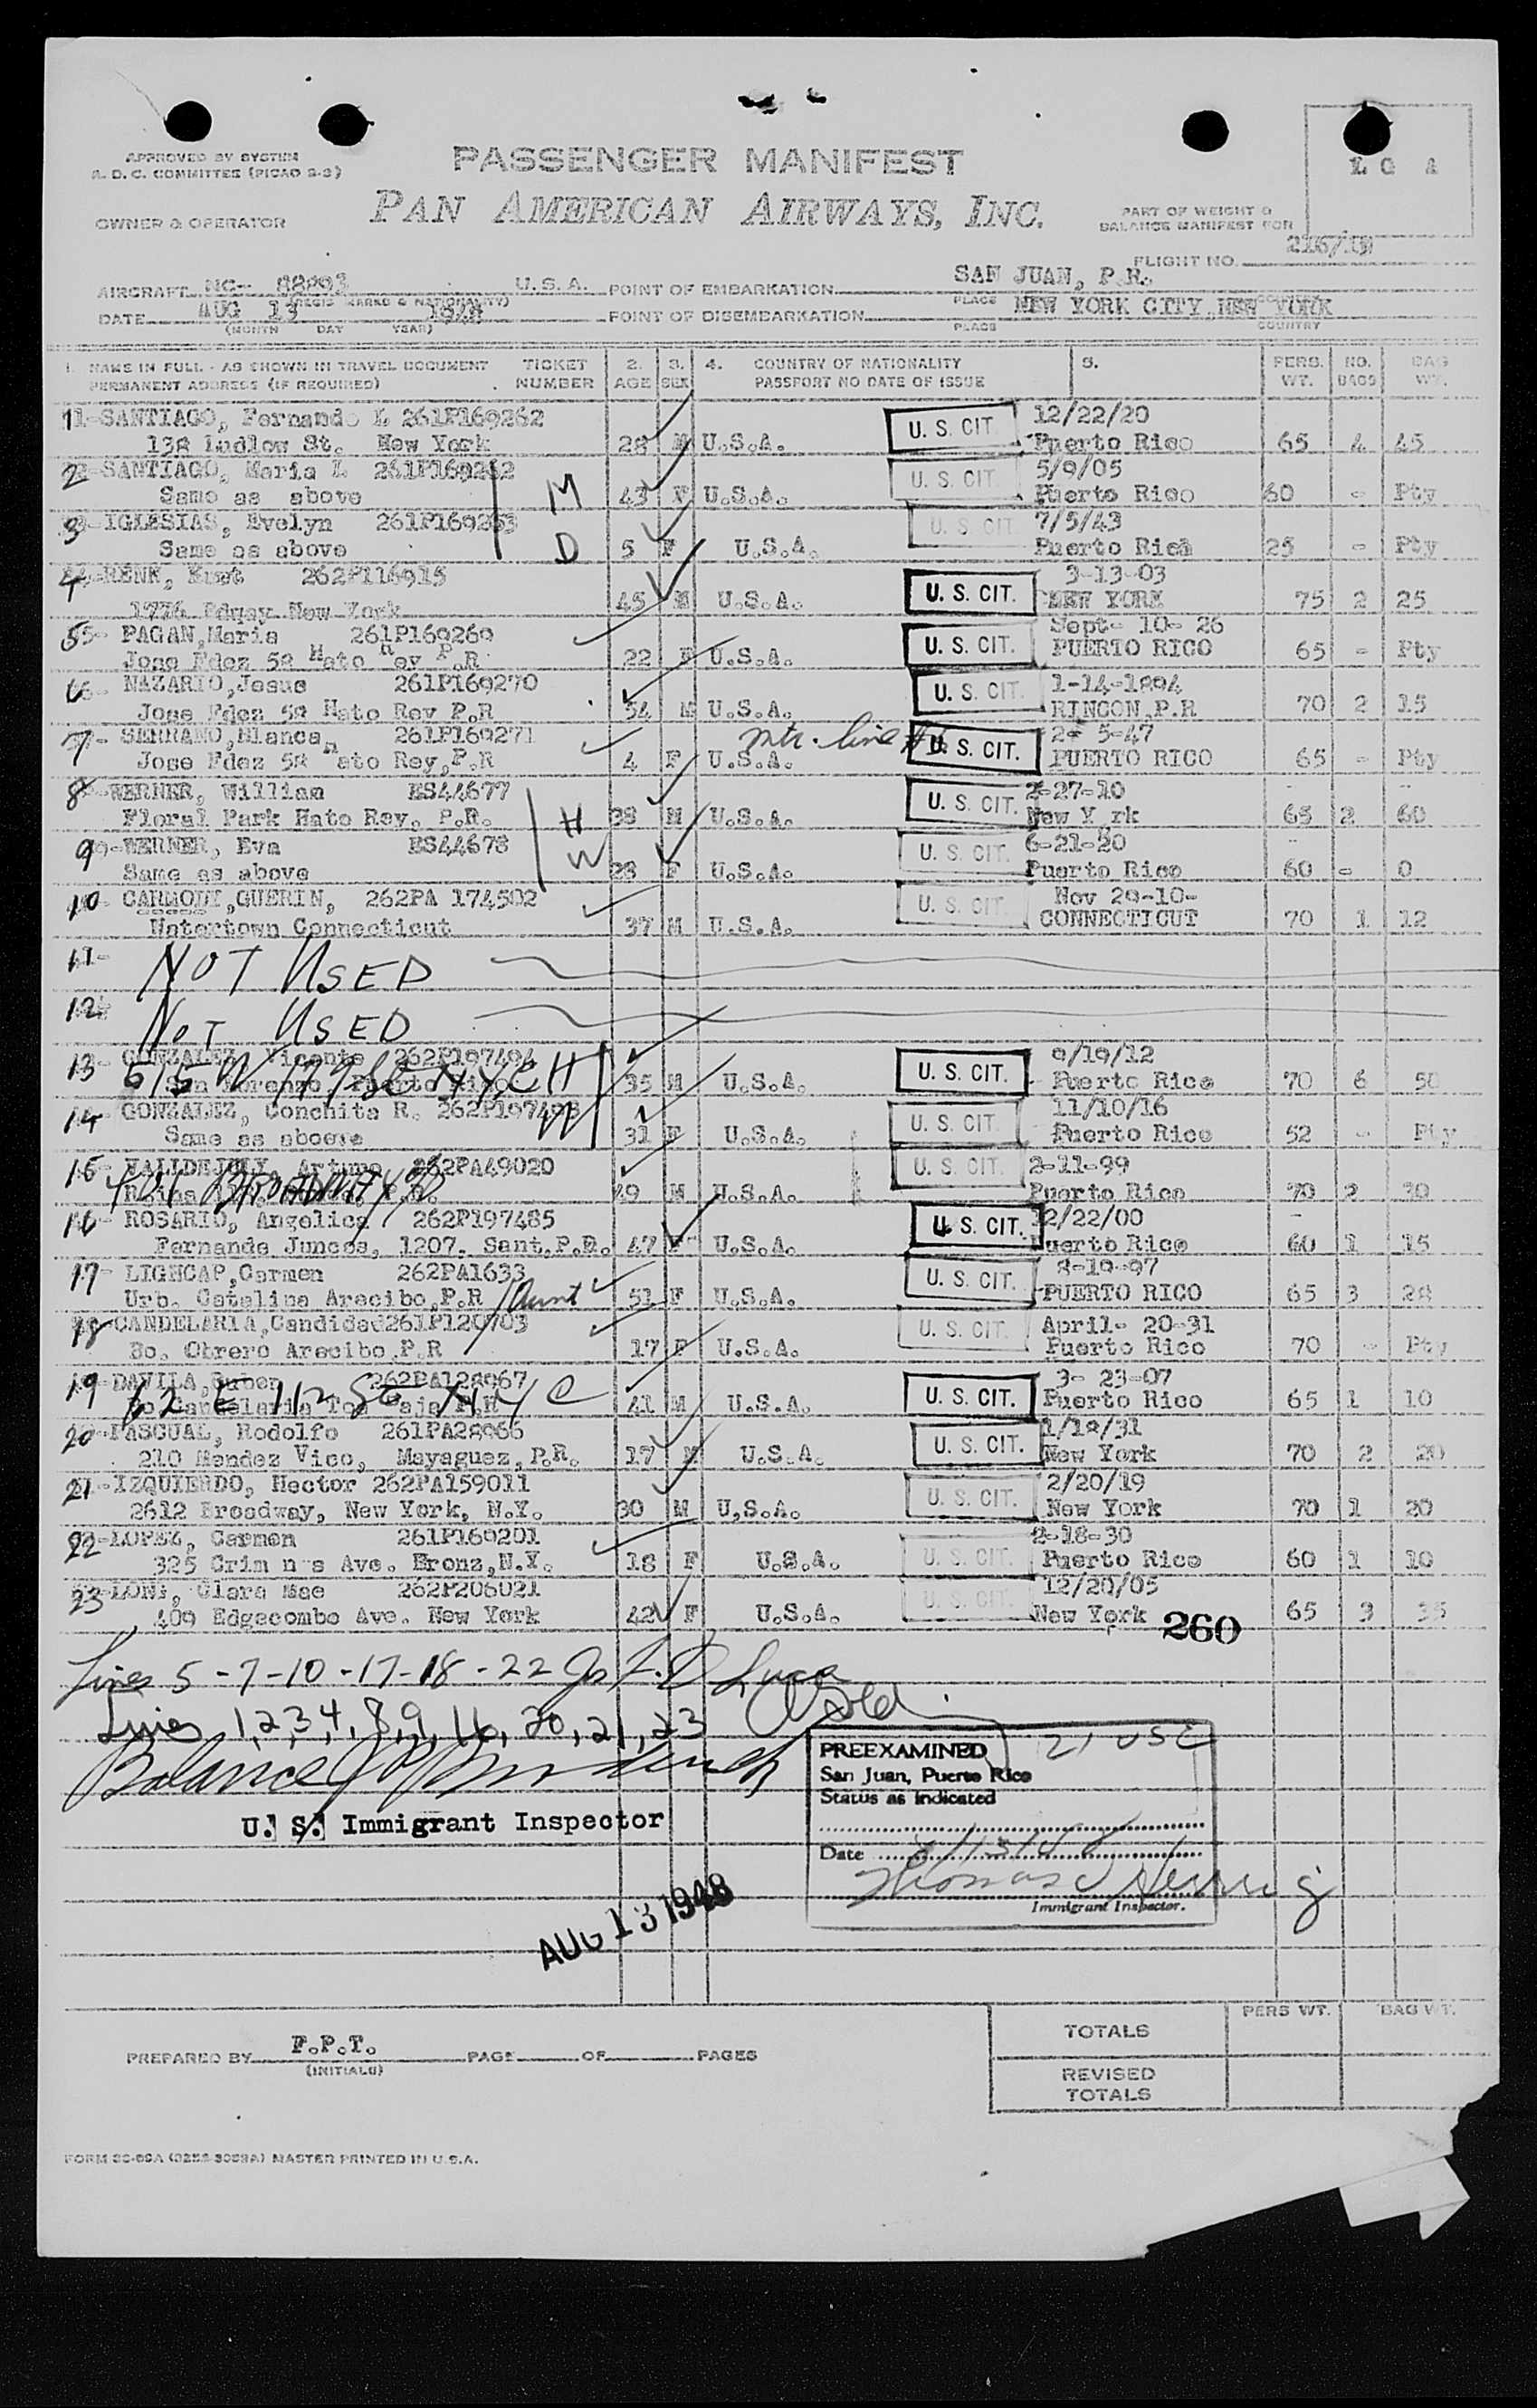 APPROVED BY SYSTEM
A. D. C. COMMITTEE (PICAO 2-2)
PASSENGER MANIFEST
L G A
PAN AMERICAN AIRWAYS, INC.
OWNER & OPERATOR
PART OF WEIGHT &
BALANCE MANIFEST FOR
FLIGHT NO.
AIRCRAFT NC- 88893 U.S.A. POINT OF EMBARKATION SAN JUAN, P.R.
(REGIS MARKS & NATIONALITY) PLACE COUNTRY
DATE AUG 13 1948 POINT OF DISEMBARKATION NEW YORK CITY, NEW YORK
(MONTH DAY YEAR) PLACE COUNTRY
1. NAME IN FULL - AS SHOWN IN TRAVEL DOCUMENT TICKET 2. 3. 4. COUNTRY OF NATIONALITY 5. PERS. NO. BAG
PERMANENT ADDRESS (IF REQUIRED) NUMBER AGE SEX PASSPORT NO DATE OF ISSUE WT. BAGS WT.
1 SANTIAGO, Fernando L 261P169262 U. S. CIT. 12/22/20
138 Ludlow St. New York 28 M U.S.A. Puerto Rico 65 4 45
2 SANTIAGO, Maria L 261P169262 U. S. CIT. 5/9/05
Same as above M 43 F U.S.A. Puerto Rico 60 - Pty
3 IGLESIAS, Evelyn 261P169263 U. S. CIT 7/5/43
Same as above D 5 F U.S.A. Puerto Rica 25 - Pty
4 RENK, Kurt 262P116915 U. S. CIT. 3-13-03
1776 Bdway New York 45 M U.S.A. NEW YORK 75 2 25
5 PAGAN, Maria 261P169269 U. S. CIT. Sept- 10- 26
Jose Fdez 58 Hato Rey P.R 22 F U.S.A. PUERTO RICO 65 - Pty
6 NAZARIO, Jesus 261P169270 U. S. CIT. 1-14-1894
Jose Fdez 58 Hato Rey P.R 54 M U.S.A. RINCON, P.R 70 2 15
7 SERRANO, Blanca 261P169271 mtr. line # U. S. CIT. 2- 5-47
Jose Fdez 58 Hato Rey, P.R 4 F U.S.A. PUERTO RICO 65 - Pty
8 WERNER, William ES44677 U. S. CIT. 2-27-10
Floral Park Hato Rey, P.R. H 38 M U.S.A. New Y rk 65 2 60
9 WERNER, Eva ES44678 U. S. CIT. 6-21-20
Same as above W 28 F U.S.A. Puerto Rico 60 - 0
10 CARMODY, GUERIN, 262PA 174502 U. S. CIT. Nov 29-10-
Watertown Connecticut 37 M U.S.A. CONNECTICUT 70 1 12
11- NOT USED
12 NOT USED
13 GONZALEZ, Vicente 262P197494 U. S. CIT. 9/19/12
515 W 179 St NYC H
San Lorenzo, Puerto Rico 35 M U.S.A. Puerto Rico 70 6 50
14 GONZALEZ, Conchita R. 262P197493 U. S. CIT. 11/10/16
Same as aboove W 31 F U.S.A. Puerto Rico 52 - Pty
15 VALLDEJULY, Arturo 262PA49020 U. S. CIT. 2-11-99
49 M U.S.A. Puerto Rico 70 2 30
16 ROSARIO, Angelica 262P197485 U. S. CIT. 12/22/00
Fernando Juncos, 1207. Sant. P.R. 47 F U.S.A. Puerto Rico 60 1 15
17 LIGHCAP, Carmen 262PA1633 U. S. CIT. 8-19-97
Urb. Catalina Arecibo, P.R Aunt 51 F U.S.A. PUERTO RICO 65 3 28
18 CANDELARIA, Candidad 261P120703 U. S. CIT. April- 20-31
Bo. Obrero Arecibo, P.R 17 F U.S.A. Puerto Rico 70 - Pty
19 DAVILA, Ruben 262PA128967 U. S. CIT. 3- 23-07
62 E 112 St NYC
Bo Candelaria Toa Baja P.R 41 M U.S.A. Puerto Rico 65 1 10
20 PASCUAL, Rodolfo 261PA28966 U. S. CIT. 1/18/31
210 Mendez Vico, Mayaguez, P.R. 17 M U.S.A. New York 70 2 20
21 IZQUIERDO, Hector 262PA159011 U. S. CIT. 2/20/19
2612 Broadway, New York, N.Y. 30 M U.S.A. New York 70 1 20
22 LOPEZ, Carmen 261P169201 U. S. CIT. 2-18-30
325 Crim n s Ave. Bronz, N.Y. 18 F U.S.A. Puerto Rico 60 1 10
23 LONG, Clara Mae 262P206021 U. S. CIT. 12/20/05
409 Edgecombe Ave. New York 42 F U.S.A. New York 65 3 35
260
Lines 5-7-10-17-18-22
Lines 1,2,3,4,8,9,16,20,21,23
Balance
U. S. Immigrant Inspector
PREEXAMINED 21 USC
San Juan, Puerto Rico
Status as indicated
Date 8/13/48
Immigrant Inspector.
AUG 13 1948
PERS WT. BAG WT.
TOTALS
PREPARED BY F.P.T. PAGE OF PAGES
(INITIALS)
REVISED
TOTALS
FORM MASTER PRINTED IN U.S.A.